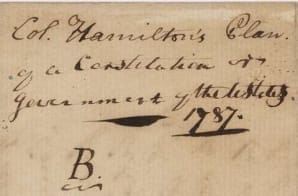 Col. Hamilton's Plan.
of a Constitution or
Government of the U States
1787.
B.